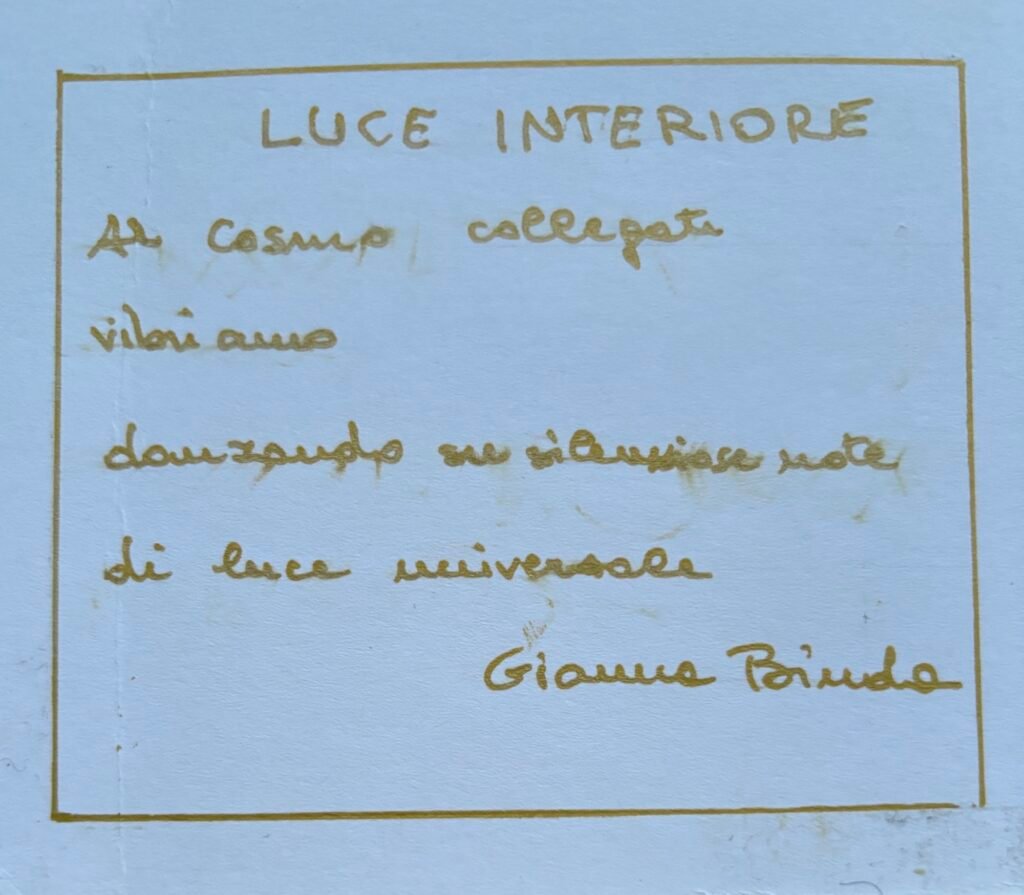 LUCE INTERIORE
Al Cosmo collegati
vibriamo
danzando su silenziose note
di luce universale
Gianna Binda